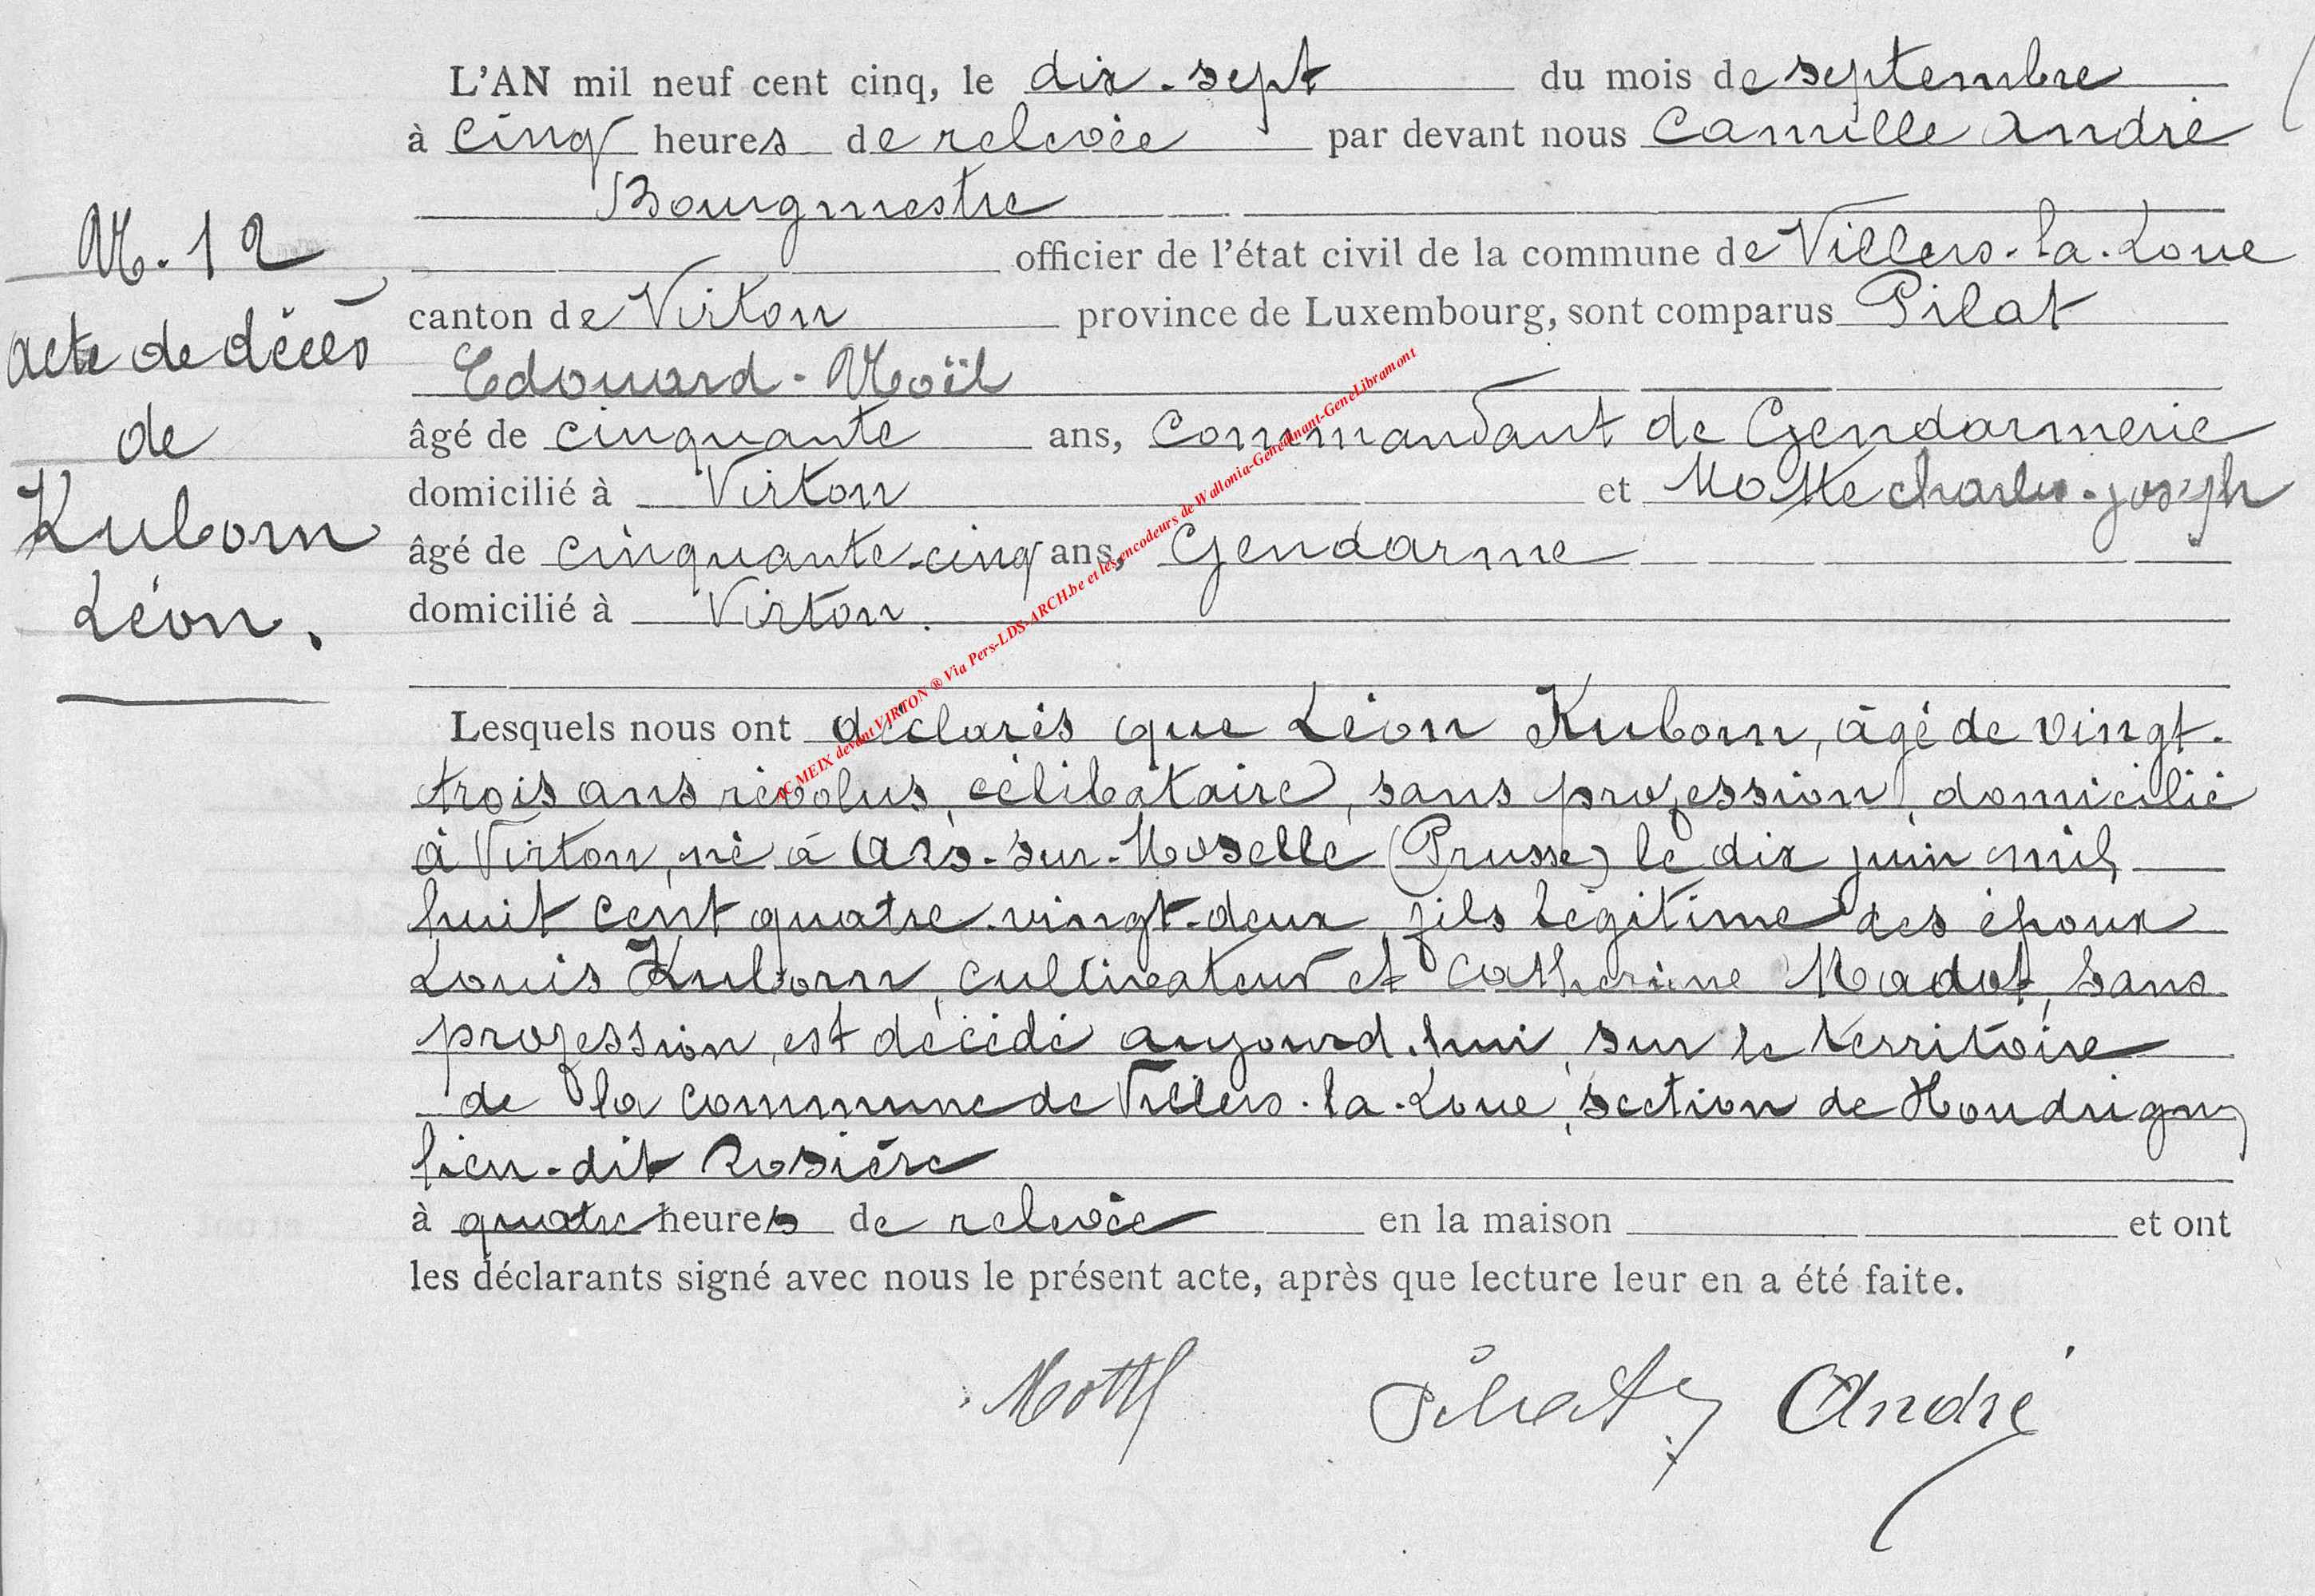 L'AN mil neuf cent cinq, le dix-sept du mois de septembre
à cinq heures de relevée par devant nous Camille André
Bourgmestre
officier de l'état civil de la commune de Villers-la-Loue
canton de Virton province de Luxembourg, sont comparus Pilat
Edouard-Noël
âgé de cinquante ans, Commandant de Gendarmerie
domicilié à Virton et Motte charles-joseph
âgé de cinquante-cinq ans, Gendarme
domicilié à Virton.
N. 12
acte de décès
de
Kuborn
Léon.
Lesquels nous ont déclarés que Léon Kuborn, âgé de vingt-
trois ans révolus, célibataire, sans profession, domicilié
à Virton, né à Ars-sur-Moselle (Prusse) le dix juin mil
huit cent quatre-vingt-deux, fils légitime des époux
Louis Kuborn, cultivateur et Catherine Madot, sans
profession, est décédé aujourd'hui, sur le territoire
de la commune de Villers-la-Loue, section de Houdrigny
lieu-dit Rosière
à quatre heures de relevée en la maison et ont
les déclarants signé avec nous le présent acte, après que lecture leur en a été faite.
Motte Pilat André
JC MEIX devant VIRTON ® Via Pers-LDS-ARCH.be et les encodeurs de Wallonia-Genedinant-GeneLibramont